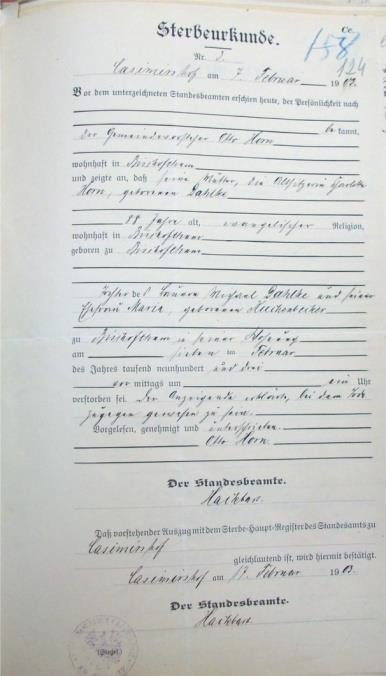 C.
Sterbeurkunde.
158
Nr. 2
124
Casimirshof am 7. Februar 1903.
Vor dem unterzeichneten Standesbeamten erschien heute, der Persönlichkeit nach
be kannt,
der Gemeindevorsteher Otto Horn
wohnhaft in
und zeigte an, daß seine Mutter, die Altsitzerin
Horn, geborenen Gahlke
88 Jahre alt, evangelischer Religion,
wohnhaft in
geboren zu
Tochter des Bauern Michael Gahlke und seiner
Ehefrau Maria, geborenen
zu in seiner Wohnung
am sieben ten Februar
des Jahres tausend neunhundert und drei
vor mittags um ein Uhr
verstorben sei. Der Anzeigende erklärte, bei dem Tode
zugegen gewesen zu sein.
Vorgelesen, genehmigt und unterschrieben.
Otto Horn.
Der Standesbeamte.
Daß vorstehender Auszug mit dem Sterbe-Haupt-Register des Standesamts zu
Casimirshof
gleichlautend ist, wird hiermit bestätigt.
Casimirshof am Februar 1903.
Der Standesbeamte.
(Siegel)